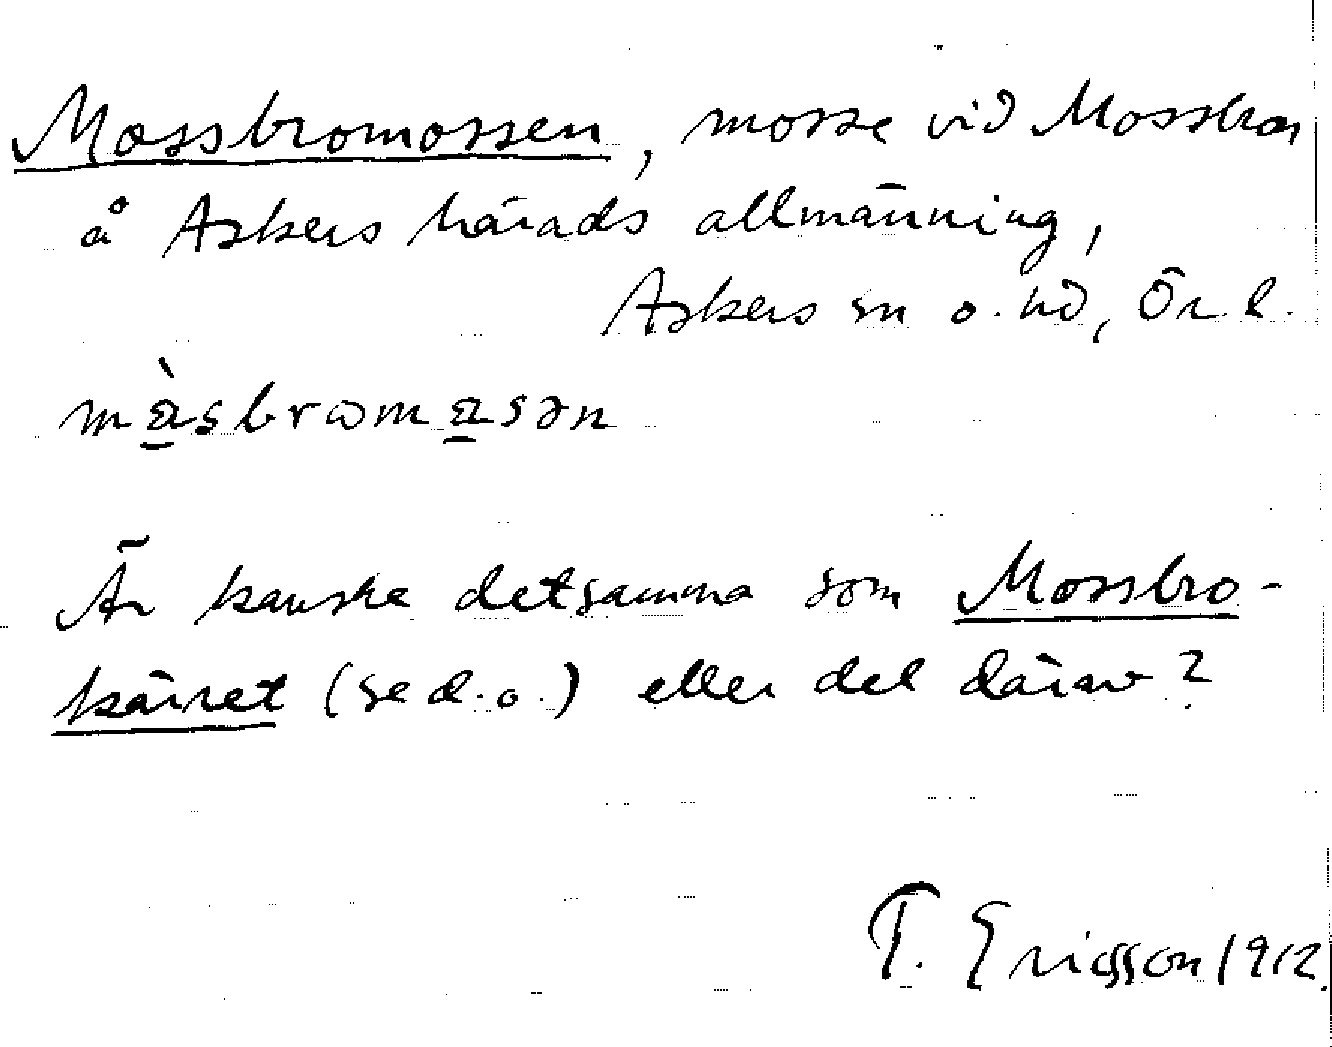 Mossbromossen, mosse vid Mossbron
å Askers härads allmänning,
Askers sn o. hd, Ör. l.
Är kanske detsamma som Mossbro-
kärret (se d. o.) eller del därav?
T. Ericsson 1912.